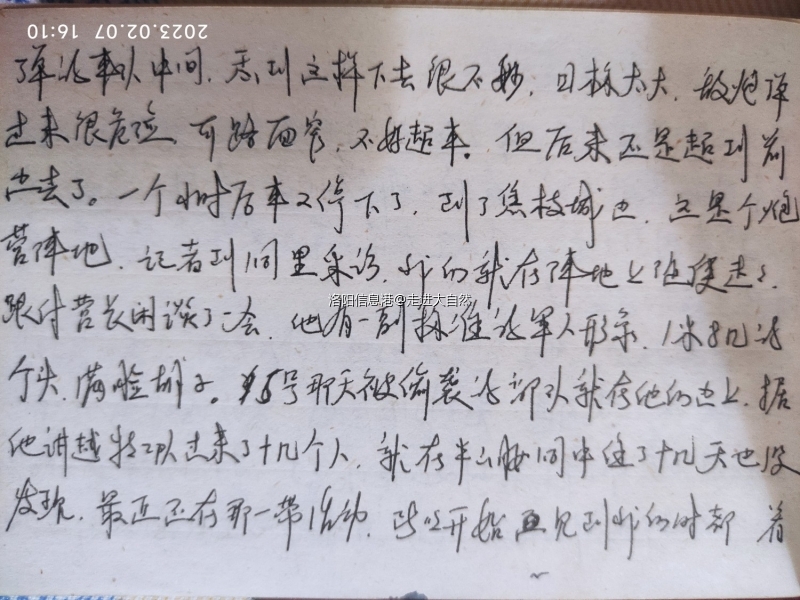 2023.02.07 16:10
弹的车队中间，看到这样下去很不妙，目标太大，敌炮弹
过来很危险，可路面窄，不好超车。但后来还是超到前
边去了。一个小时后车又停下了，到了焦枝城边，这是个炮
营阵地，记者到洞里采访，我们就在阵地上随便走了，
跟付营长闲谈了一会，他有一副标准的军人形象，1米8几的
洛阳信息港@走进大自然
个头，满脸胡子。5号那天被偷袭的部队就在他们边上，据
他讲越特工队过来了十几个人，就在半山腰洞中住了十几天也没
发现，最近还在那一带活动，所以开始再见到我们时都着